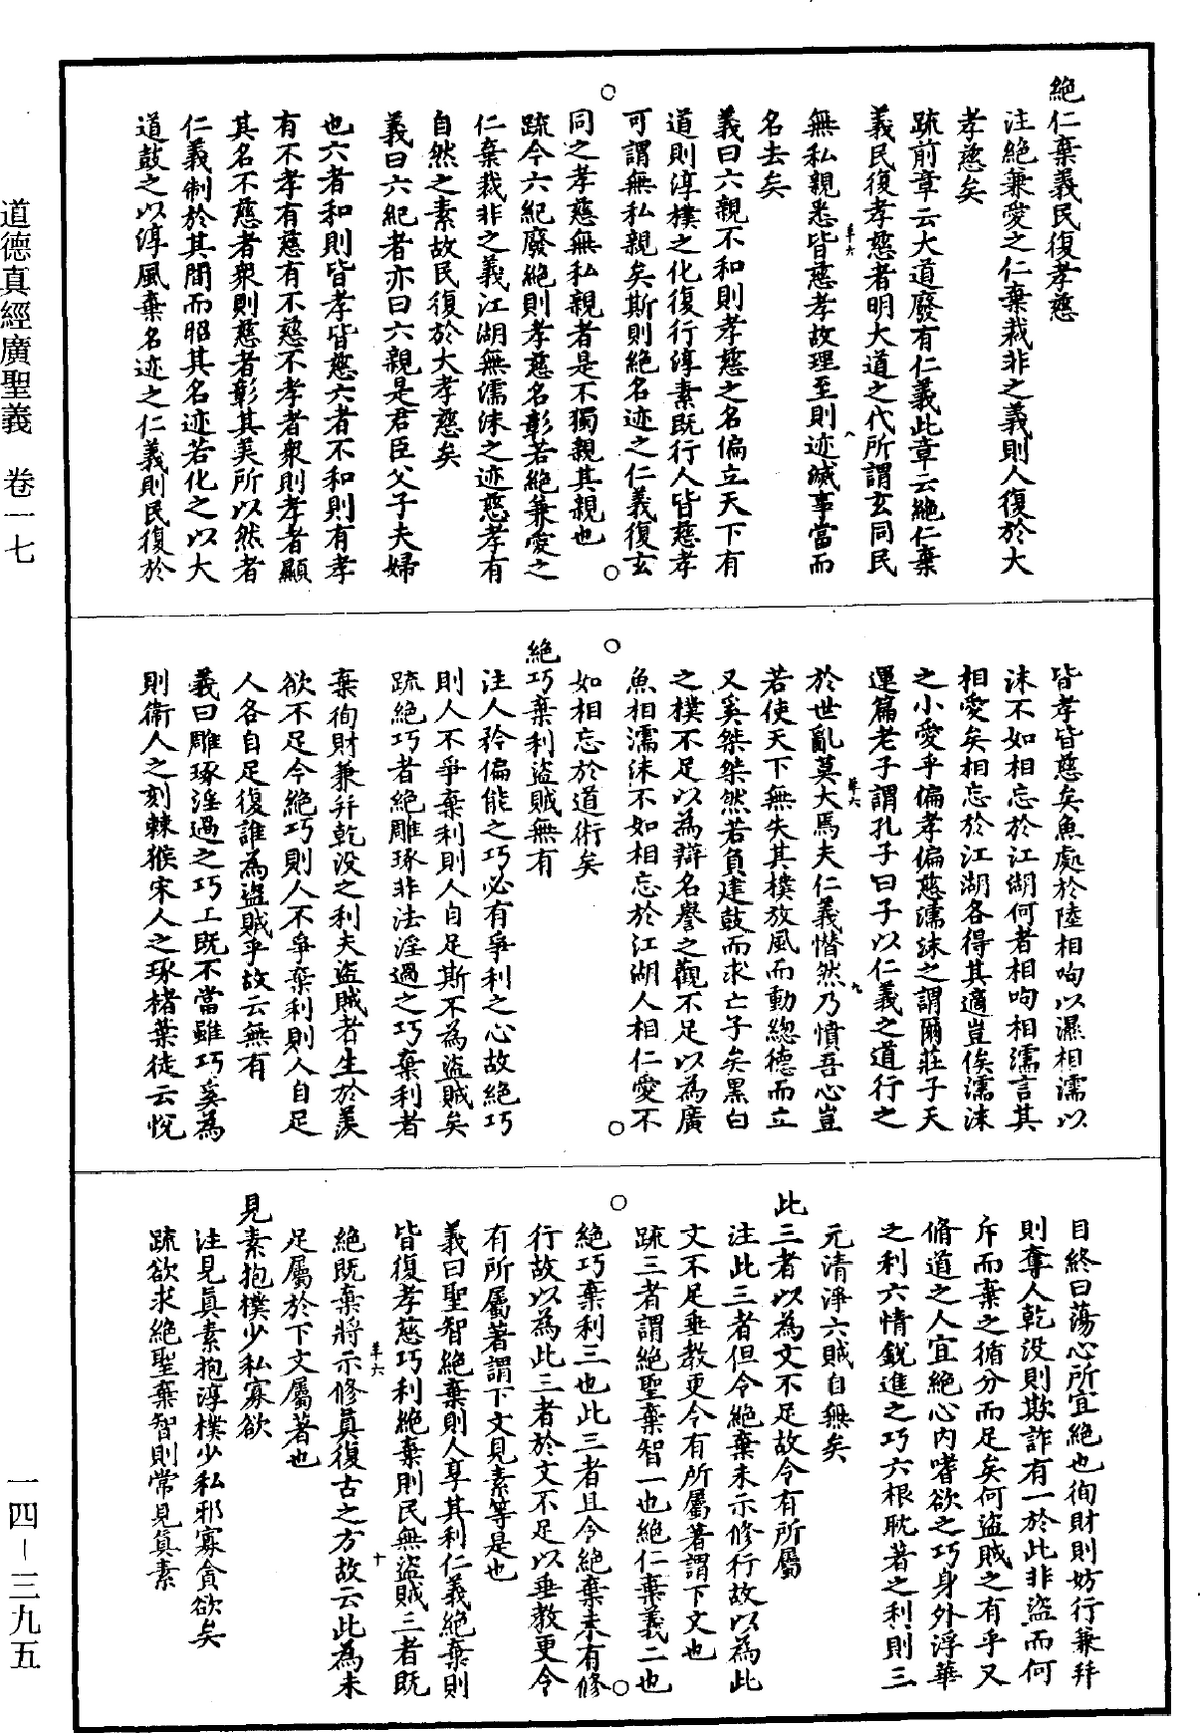 絶仁棄義民復孝慈
注絶兼愛之仁棄裁非之義則人復於大
孝慈矣
疏前章云大道廢有仁義此章云絶仁棄
義民復孝慈者明大道之代所謂玄同民
無私親悉皆慈孝故理至則迹滅事當而
名去矣
義曰六親不和則孝慈之名偏立天下有
道則淳樸之化復行淳素既行人皆慈孝
可謂無私親矣斯則絶名迹之仁義復玄
同之孝慈無私親者是不獨親其親也
疏今六紀廢絶則孝慈名彰若絶兼愛之
仁棄裁非之義江湖無濡沫之迹慈孝有
自然之素故民復於大孝慈矣
義曰六紀者亦曰六親是君臣父子夫婦
也六者和則皆孝皆慈六者不和則有孝
有不孝有慈有不慈不孝者衆則孝者顯
其名不慈者衆則慈者彰其美所以然者
仁義制於其間而昭其名迹若化之以大
道鼓之以淳風棄名迹之仁義則民復於
皆孝皆慈矣魚處於陸相呴以濕相濡以
沫不如相忘於江湖何者相呴相濡言其
相愛矣相忘於江湖各得其適豈俟濡沫
之小愛乎偏孝偏慈濡沫之謂爾莊子天
運篇老子謂孔子曰子以仁義之道行之
於世亂莫大焉夫仁義憯然乃憤吾心豈
若使天下無失其樸放風而動緫德而立
又奚桀桀然若負建鼓而求亡子矣黑白
之樸不足以為辯名譽之觀不足以為廣
魚相濡沫不如相忘於江湖人相仁愛不
如相忘於道術矣
絶巧棄利盜賊無有
注人矜偏能之巧必有爭利之心故絶巧
則人不爭棄利則人自足斯不為盜賊矣
疏絶巧者絶雕琢非法淫過之巧棄利者
棄徇財兼并乾没之利夫盜賊者生於羨
欲不足今絶巧則人不爭棄利則人自足
人各自足復誰為盜賊乎故云無有
義曰雕琢淫過之巧工既不當雖巧奚為
則衛人之刻棘猴宋人之琢楮葉徒云悅
目終曰蕩心所宜絶也徇財則妨行兼并
則奪人乾没則欺詐有一於此非盜而何
斥而棄之循分而足矣何盜賊之有乎又
脩道之人宜絶心内嗜欲之巧身外浮華
之利六情銳進之巧六根耽著之利則三
元清淨六賊自無矣
此三者以為文不足故令有所屬
注此三者但令絶棄未示修行故以為此
文不足垂教更令有所屬著謂下文也
疏三者謂絶聖棄智一也絶仁棄義二也
絶巧棄利三也此三者且令絶棄未有修
行故以為此三者於文不足以垂教更令
有所屬著謂下文見素等是也
義曰聖智絶棄則人享其利仁義絶棄則
皆復孝慈巧利絶棄則民無盜賊三者既
絶既棄將示修真復古之方故云此為未
足屬於下文屬著也
見素抱樸少私寡欲
注見真素抱淳樸少私邪寡貪欲矣
疏欲求絶聖棄智則常見真素
道德真經廣聖義 卷一七
一四—三九五